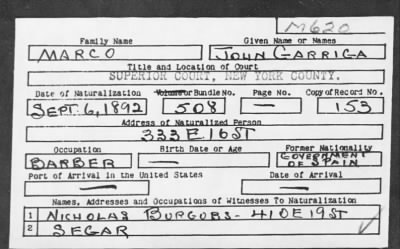 M620
Family Name Given Name or Names
MARCO JOHN GARRIGA
Title and Location of Court
SUPERIOR COURT, NEW YORK COUNTY.
Date of Naturalization Volume or Bundle No. Page No. Copy of Record No.
SEPT. 6, 1892 508 — 153
Address of Naturalized Person
333 E 16 ST
Occupation Birth Date or Age Former Nationality
BARBER — GOVERNMENT OF SPAIN
Port of Arrival in the United States Date of Arrival
— —
Names, Addresses and Occupations of Witnesses To Naturalization
1 NICHOLAS BURGOBS - 410 E 19 ST
2 SEGAR